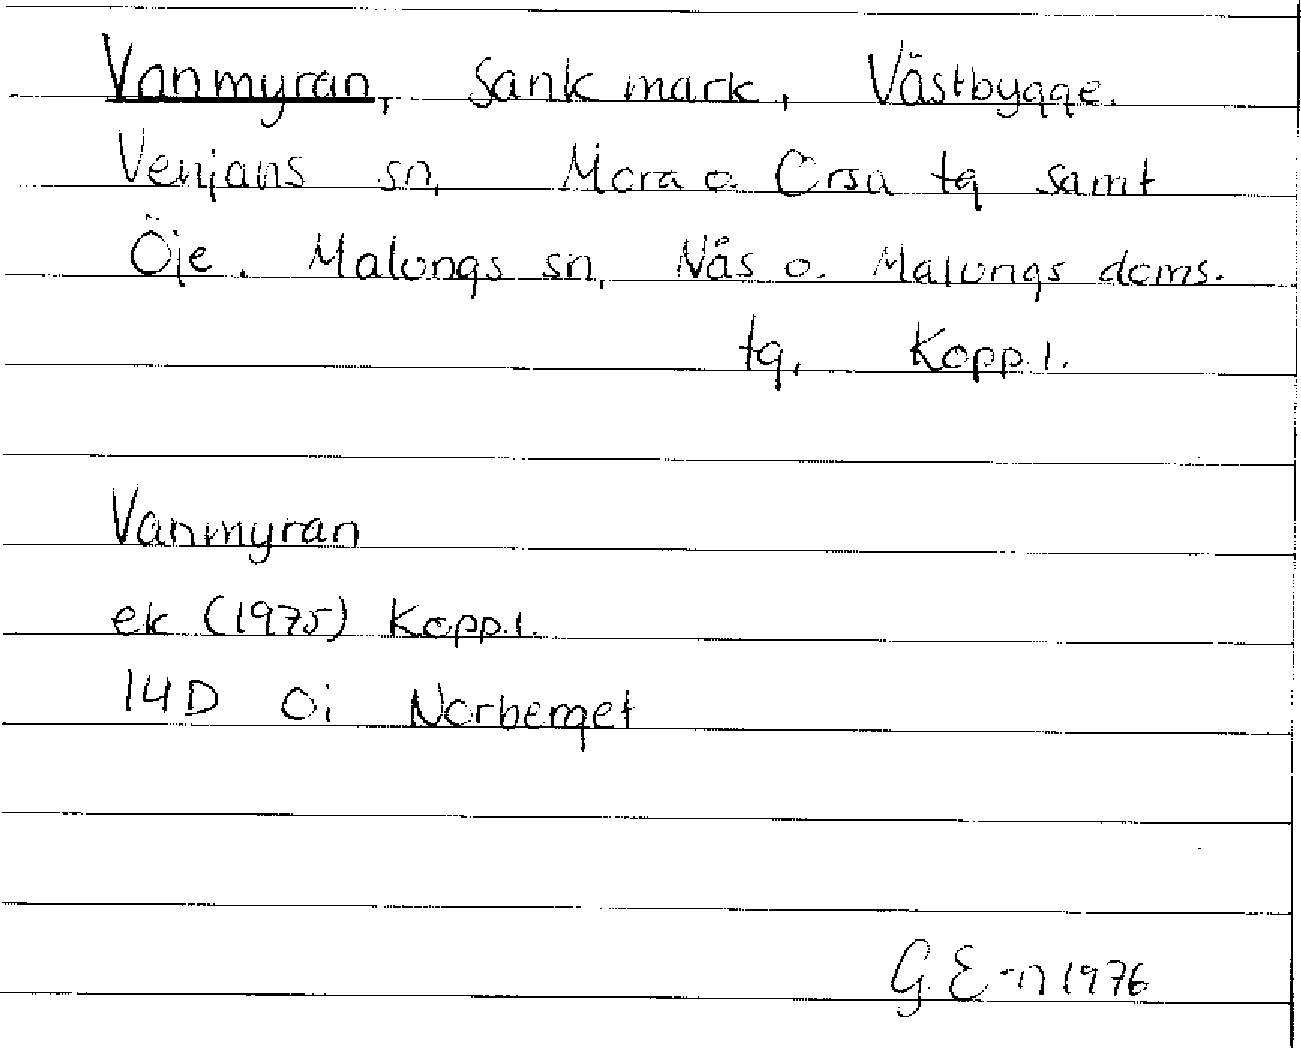 Vanmyran, sank mark, Västbygge.
Venjans sn, Mora o Orsa tg samt
Öje. Malungs sn, Nås o. Malungs doms.
tg, Kopp. l.
Vanmyran
ek (1975) Kopp.l.
14D 0i Norberget
G. E-n 1976